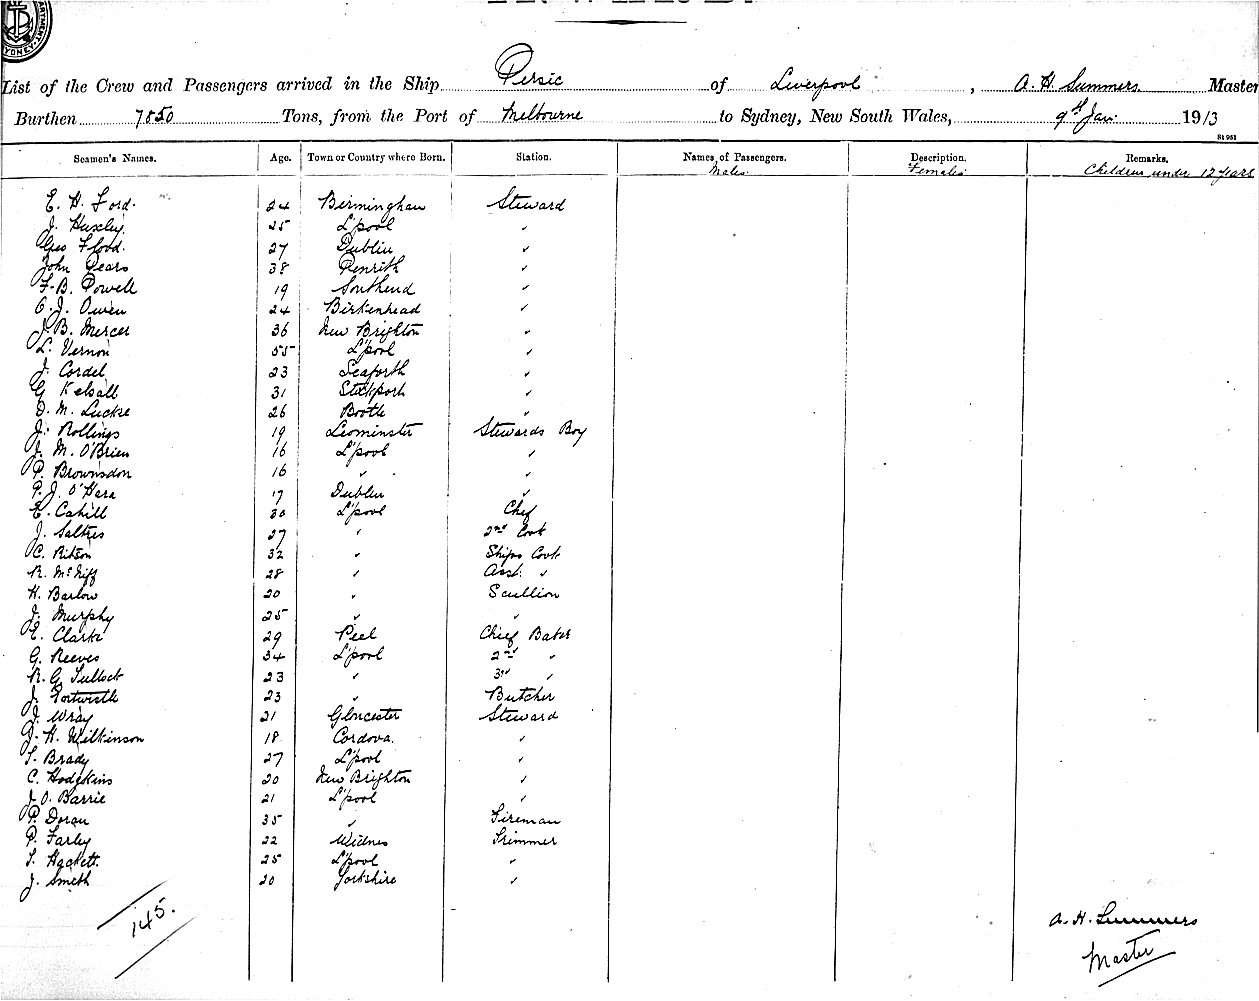 DEPARTMENT SYDNEY
List of the Crew and Passengers arrived in the Ship Persic of Liverpool, A. H. Summers Master
Burthen 7850 Tons, from the Port of Melbourne to Sydney, New South Wales, 9th Jan 1913
St 951
Seamen's Names. Age. Town or Country where Born. Station. Names of Passengers. Description. Remarks.
Males Females Children under 12 years
E. H. Ford. 24 Birmingham Steward
J. Huxley. 25 L'pool "
Geo Flood. 27 Dublin "
John Pears 38 Penrith "
F. B. Powell 19 Southend "
C. J. Owen 24 Birkenhead "
J. B. Mercer 36 New Brighton "
L. Vernon 55 L'pool "
J. Cordel 23 Seaforth "
G Kelsall 31 Stockport "
D. M. Luckie 26 Bootle "
J. Rollings 19 Leominster Stewards Boy
J. M. O'Brien 16 L'pool "
P. Brownsdon 16 " "
P. J. O'Hara 17 Dublin "
E. Cahill 30 L'pool Chef
J. Saltres 27 " 2nd Cook
C. Ritson 32 " Ships Cook
R. McNiff 28 " Asst. "
H. Barlow 20 " Scullion
J. Murphy 25 " "
E. Clarke 29 Peel Chief Baker
G. Reeves 34 L'pool 2nd "
R. G. Tullock 23 " 3rd "
J. 23 " Butcher
J. Wray 21 Gloucester Steward
J. H. Wilkinson 18 Cordova. "
T. Brady 27 L'pool "
C. Hodgkins 20 New Brighton "
J. O. Barrie 21 L'pool "
P. Doran 35 " Fireman
P. Farley 22 Widnes Trimmer
T. Hackett. 25 L'pool "
J. Smith 20 Yorkshire "
145.
A. H. Summers
Master